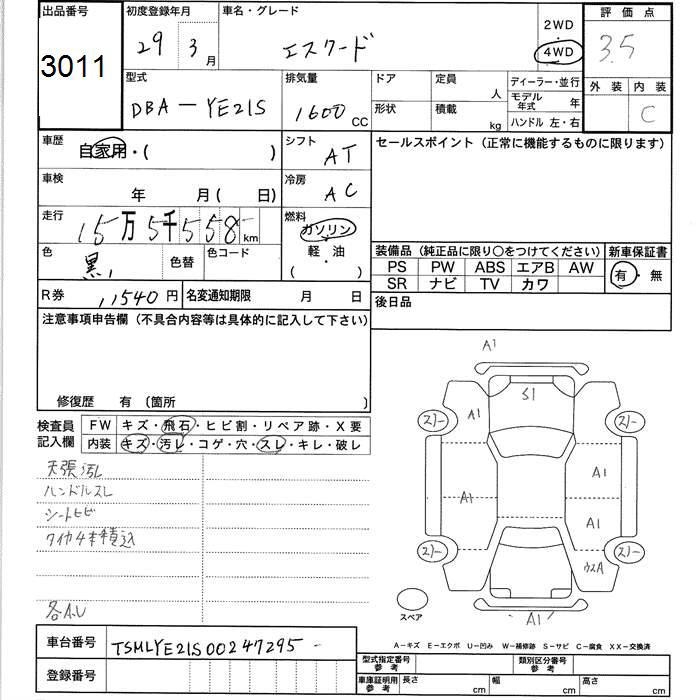 出品番号 初度登録年月 車名・グレード 2WD ・ 4WD 評価点
3011 29 3月 エスクード 3.5
型式 排気量 ドア 定員 人 ディーラー・並行 外装 内装
DBA-YE21S 1600 CC 形状 積載 kg モデル年式 年 C
ハンドル 左・右
車歴 自家用・( ) シフト AT セールスポイント（正常に機能するものに限ります）
車検 年 月( 日) 冷房 AC
走行 15万5千558km 燃料 ガソリン
色 黒 色替 色コード 軽・油 ( )
装備品（純正品に限り○をつけてください） 新車保証書
PS PW ABS エアB AW 有・無
SR ナビ TV カワ
R券 11540円 名変通知期限 月 日 後日品
注意事項申告欄（不具合内容等は具体的に記入して下さい）
修復歴 有（箇所 ）
検査員記入欄 FW キズ・飛石・ヒビ割・リペア跡・X要
内装 キズ・汚レ・コゲ・穴・スレ・キレ・破レ
天張汚レ
ハンドルスレ
シートヒビ
タイヤ4本積込
各A.U
A1
S1
A1
スリー スリー
A1 A1
A1
スリー スリー
ウスA
A1
スペア
A-キズ E-エクボ U-凹み W-補修跡 S-サビ C-腐食 XX-交換済
車台番号 TSMLYE21S00247295
登録番号
型式指定番号 参考 類別区分番号 参考
車庫証明用 参考 長さ cm 幅 cm 高さ cm